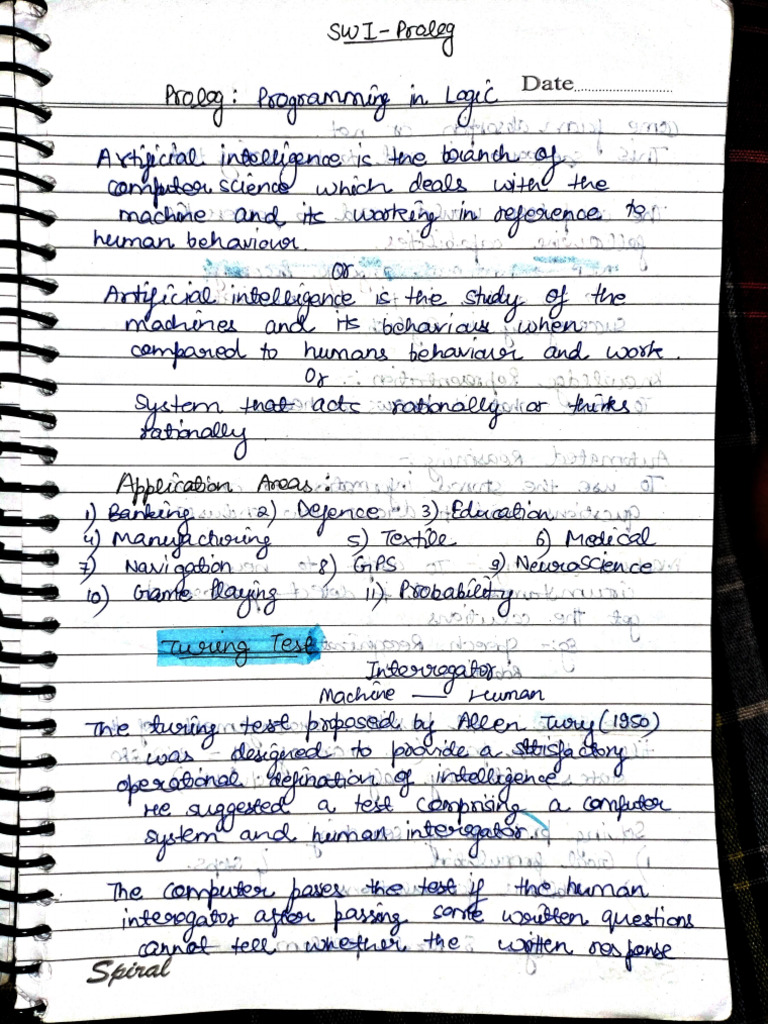 SWI-Prolog
Prolog: Programming in Logic Date
Artificial intelligence is the branch of
computer science which deals with the
machine and its working in reference to
human behaviour.
or
Artificial intelligence is the study of the
machines and its behaviour when
compared to humans behaviour and work.
Or
System that acts rationally or thinks
rationally.
Application Areas:
1) Banking 2) Defence 3) Education
4) Manufacturing 5) Textile 6) Medical
7) Navigation 8) GPS 9) NeuroScience
10) Game Playing 11) Probability
Turing Test
Interrogator
Machine — Human
The turing test proposed by Allen Tury (1950)
was designed to provide a satisfactory
operational defination of intelligence.
He suggested a test comprising a computer
system and human interegator.
The computer passes the test if the human
interegator after passing some written questions
cannot tell whether the written response
Spiral